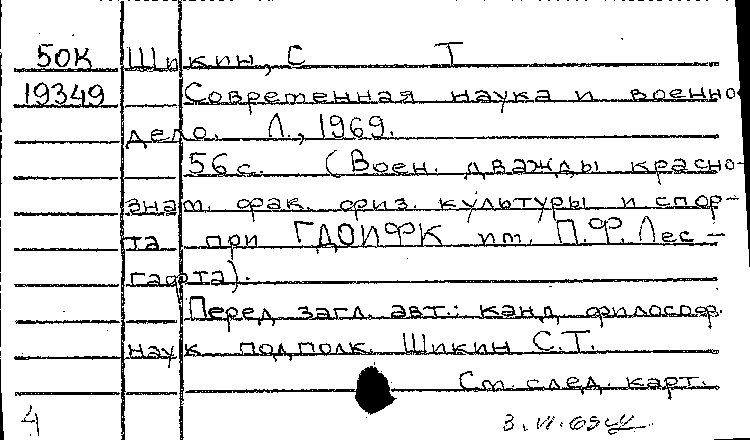 50К Шикин, С Т
19349 Современная наука и военно
дело. Л., 1969.
56 с. (Воен. дважды красно-
знам. фак. физ. культуры и спор-
та при ГДОИФК им. П.Ф. Лес-
гафта).
Перед загл. авт.: канд. философ.
наук подполк. Шикин С.Т.
См. след. карт.
4 3.VI.69